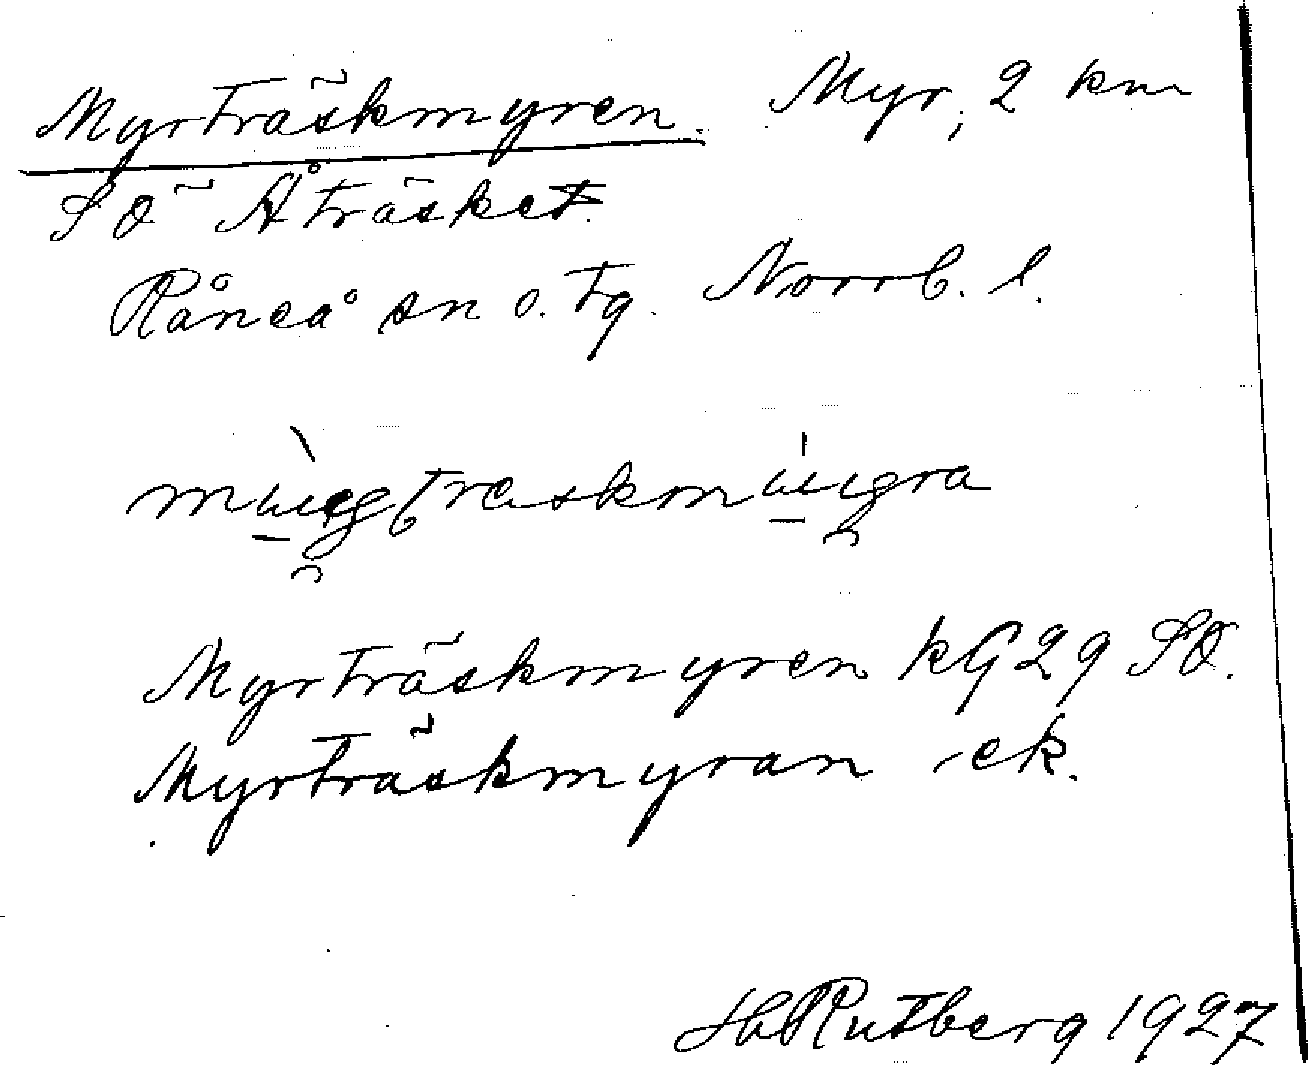 Myrträskmyren. Myr, 2 km
SÖ Åträsket.
Råneå sn o. tg. Norrb. l.
Myrträskmyren kG29 SO.
Myrträskmyran ek.
H Rutberg 1927